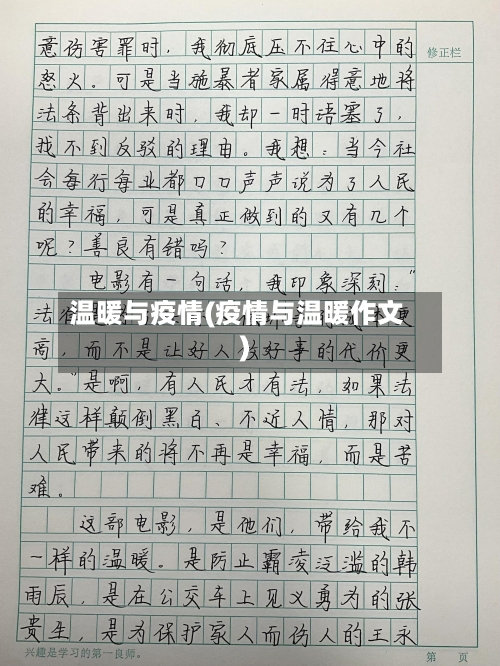 意伤害罪时，我彻底压不住心中的
修正栏
怒火。可是当施暴者家属得意地将
法条背出来时，我却一时语塞了，
我不到反驳的理由。我想：当今社
会每行每业都口口声声说为了人民
的幸福，可是真正做到的又有几个
呢？善良有错吗？
电影有一句话，我印象深刻：“
温暖与疫情(疫情与温暖作文
)
法
更
高，而不是让好人做好事的代价更
大。”是啊，有人民才有法，如果法
律这样颠倒黑白、不近人情，那对
人民带来的将不再是幸福，而是苦
难。
这部电影，是他们，带给我不
一样的温暖。是防止霸凌泛滥的韩
雨辰，是在公交车上见义勇为的张
贵生，是为保护家人而伤人的王永
兴趣是学习的第一良师。
第 页